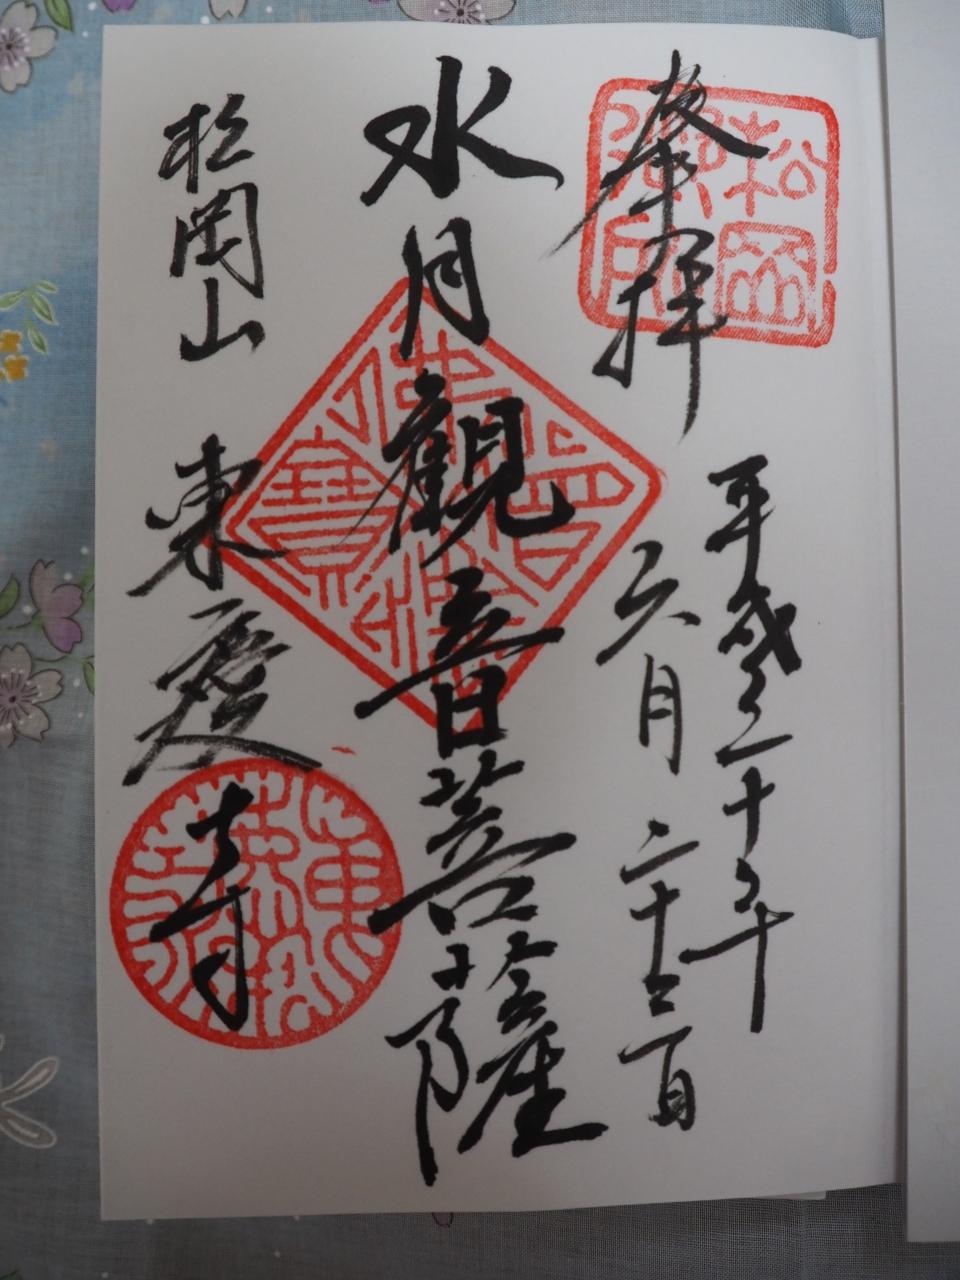 奉拝
平成三十年
六月二十三日
水月觀音菩薩
松岡山 東慶寺
松岡